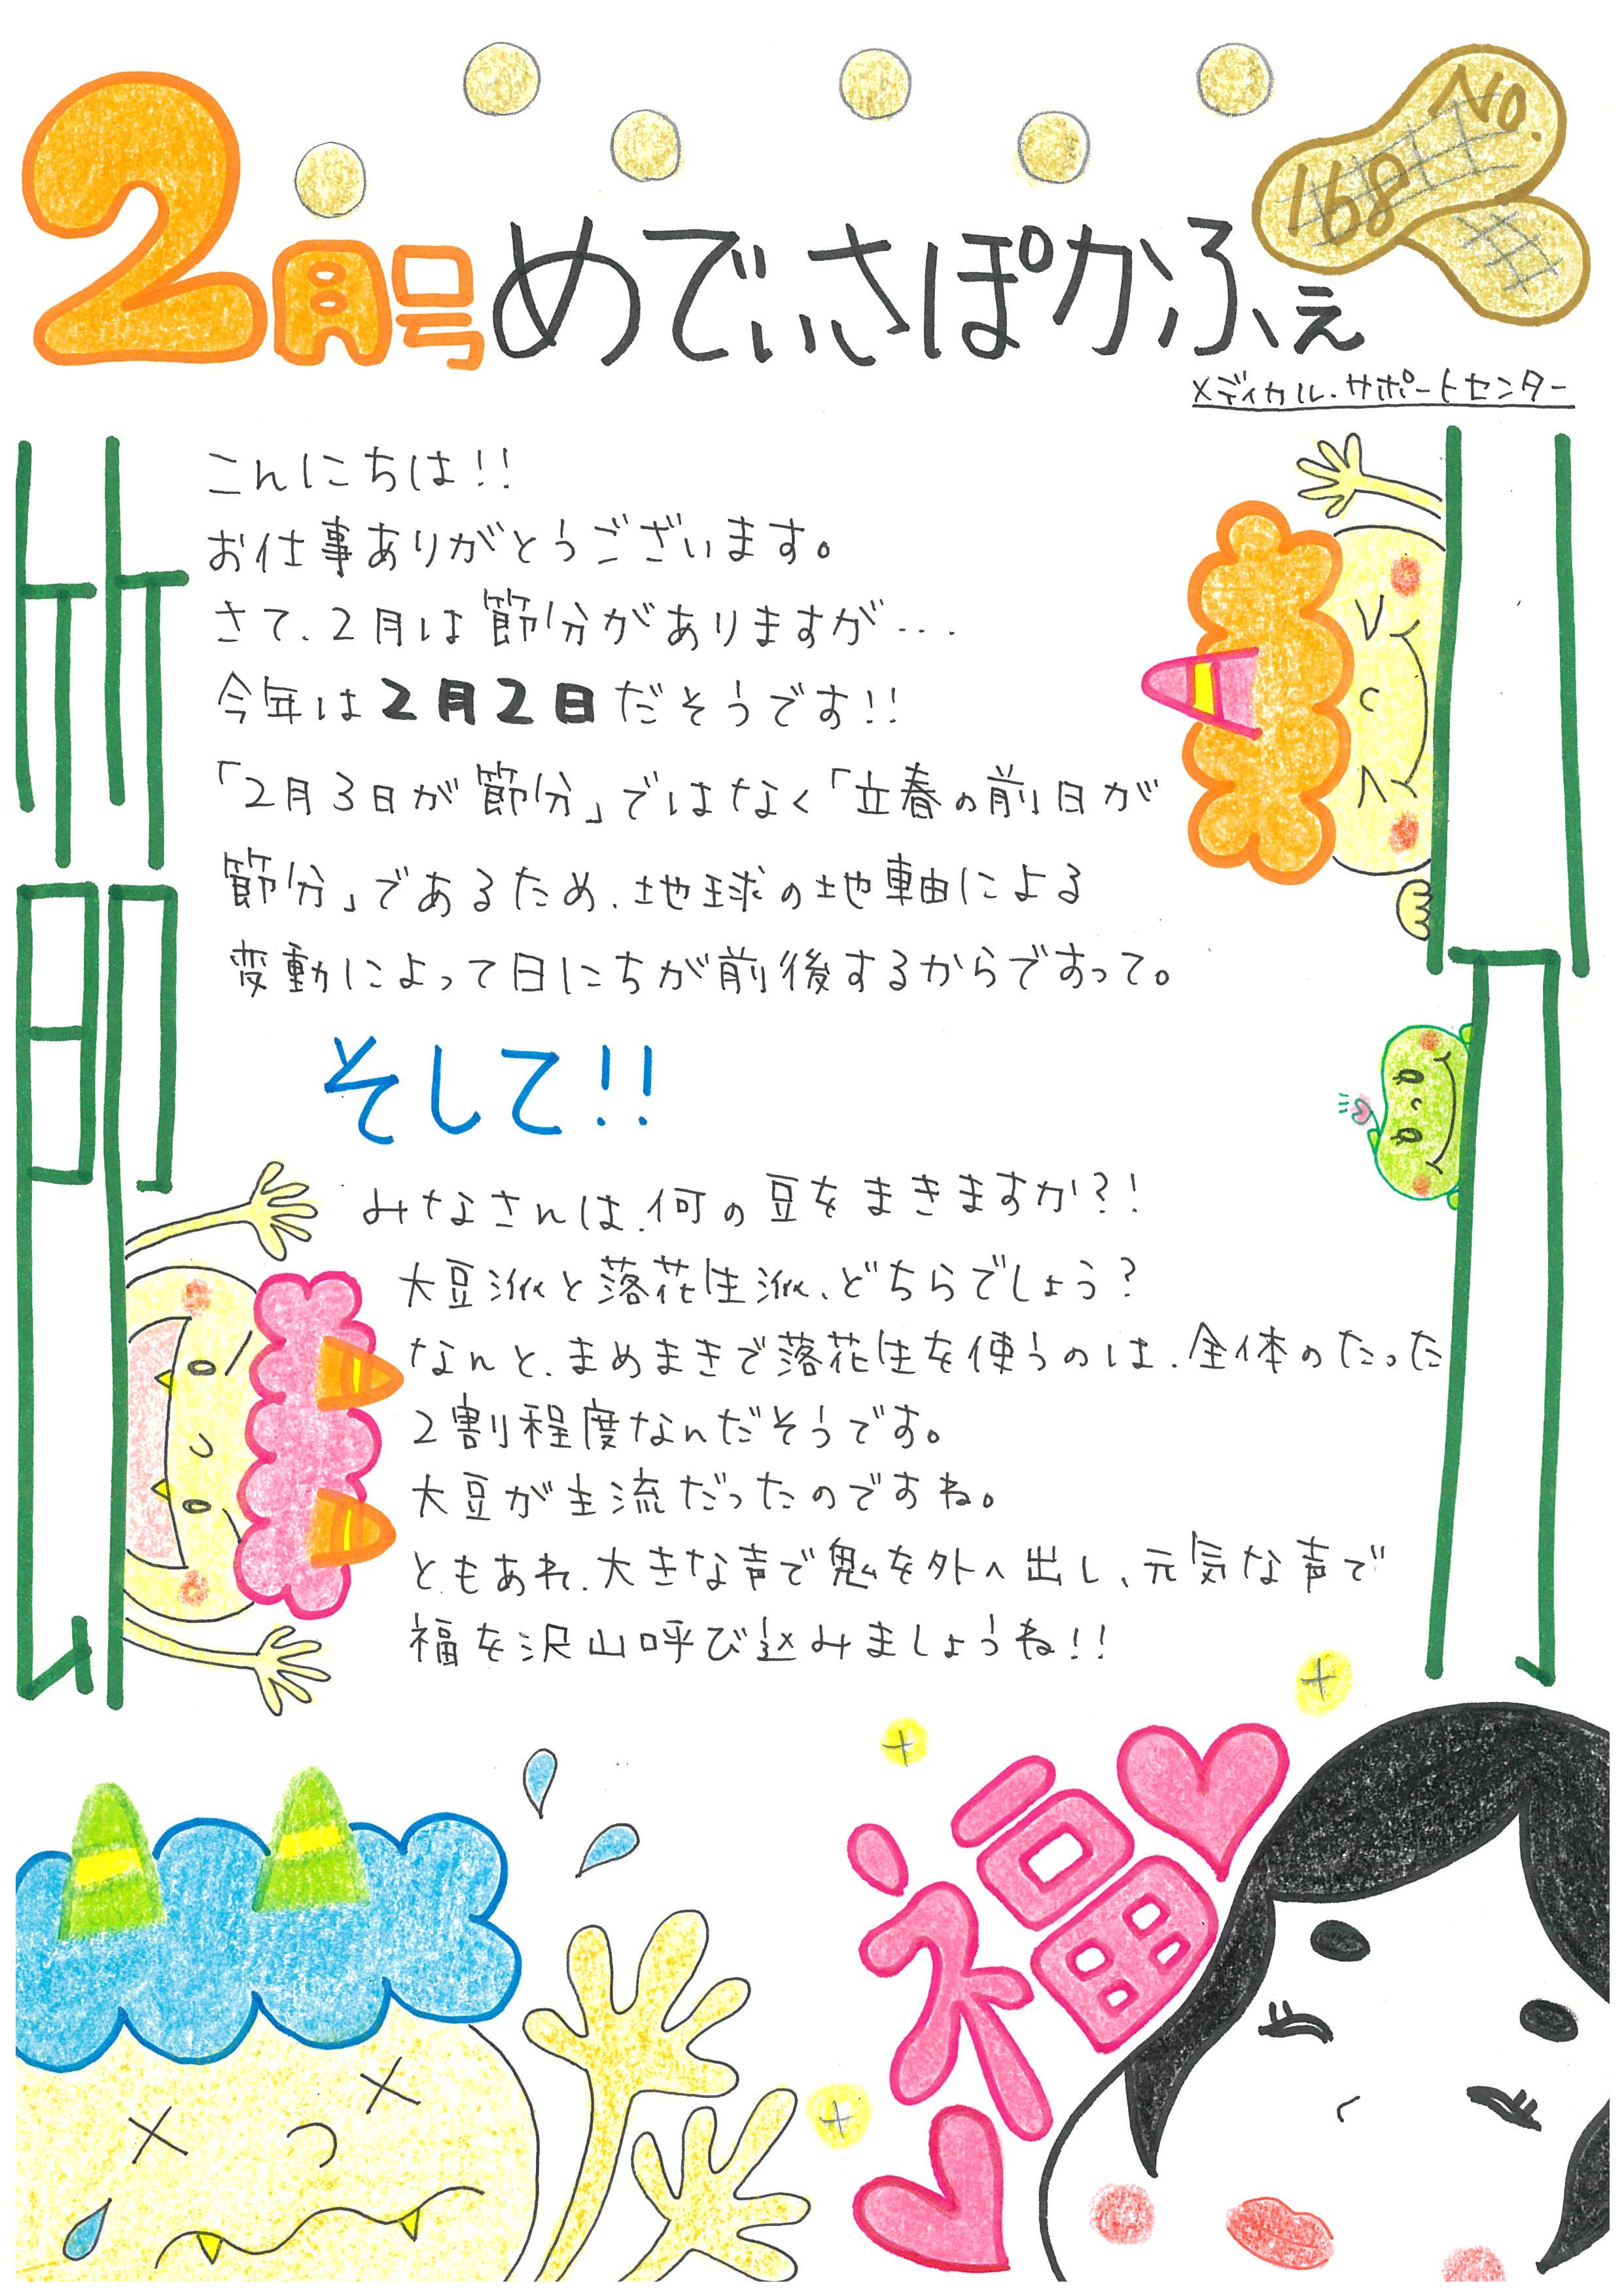 2月号めでぃさぽかふぇ
No.
168
メディカル・サポートセンター
こんにちは!!
お仕事ありがとうございます。
さて、2月は節分がありますが…
今年は2月2日だそうです!!
「2月3日が節分」ではなく「立春の前日が
節分」であるため、地球の地軸による
変動によって日にちが前後するからですって。
そして!!
みなさんは、何の豆をまきますか?!
大豆派と落花生派、どちらでしょう?
なんと、まめまきで落花生を使うのは、全体のたった
2割程度なんだそうです。
大豆が主流だったのですね。
ともあれ、大きな声で鬼を外へ出し、元気な声で
福を沢山呼び込みましょうね!!
節
分
福